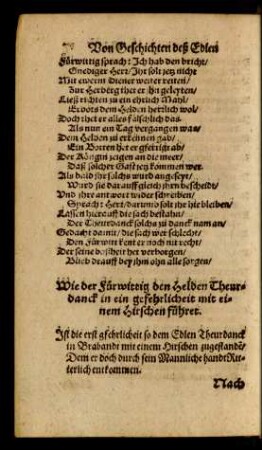 Von Geschichten deß Edlen
Fürwittig sprach: Ich hab den bricht/
Gnediger Herr/ Ihr solt jetz nicht
Mit ewerm diener weiter reiten/
Zur Herberg thet er ihn geleyten/
Ließ richten zu ein ehrlich Mahl/
Erbots dem Helden herrlich wol/
Doch thet er alles fälschlich das.
Als nun ein Tag vergangen was/
Dem Helden zu erkennen gab/
Ein Botten het er gfertigt ab/
Der Königin zeigen an die meer/
Daß solcher Gast jetz kommen wer.
Als bald ihr solchs wurd angeseyt/
Wurd sie darauff gleich ihrn bescheidt/
Und ihre antwort wider schreiben/
Sprach: Herr/ darumb solt ihr hie bleiben/
Lassen hierauff die sach bestahn/
Der Theurdanck solchs zu danck nam an/
Gedacht damit/ die sach wer schlecht/
Den Fürwitz kent er noch nit recht/
Der seine boßheit het verborgen/
Blieb drauff bey ihm ohn alle sorgen/
Wie der Fürwittig den Helden Theur-
danck in ein gefehrlicheit mit ei-
nem Hirschen führet.
Ist die erst gfehrlicheit so dem Edlen Theurdanck
in Brabandt mit einem Hirschen zugestanden/
Dem er doch durch sein Mannliche handt Rit-
terlich entkommen.
Nach